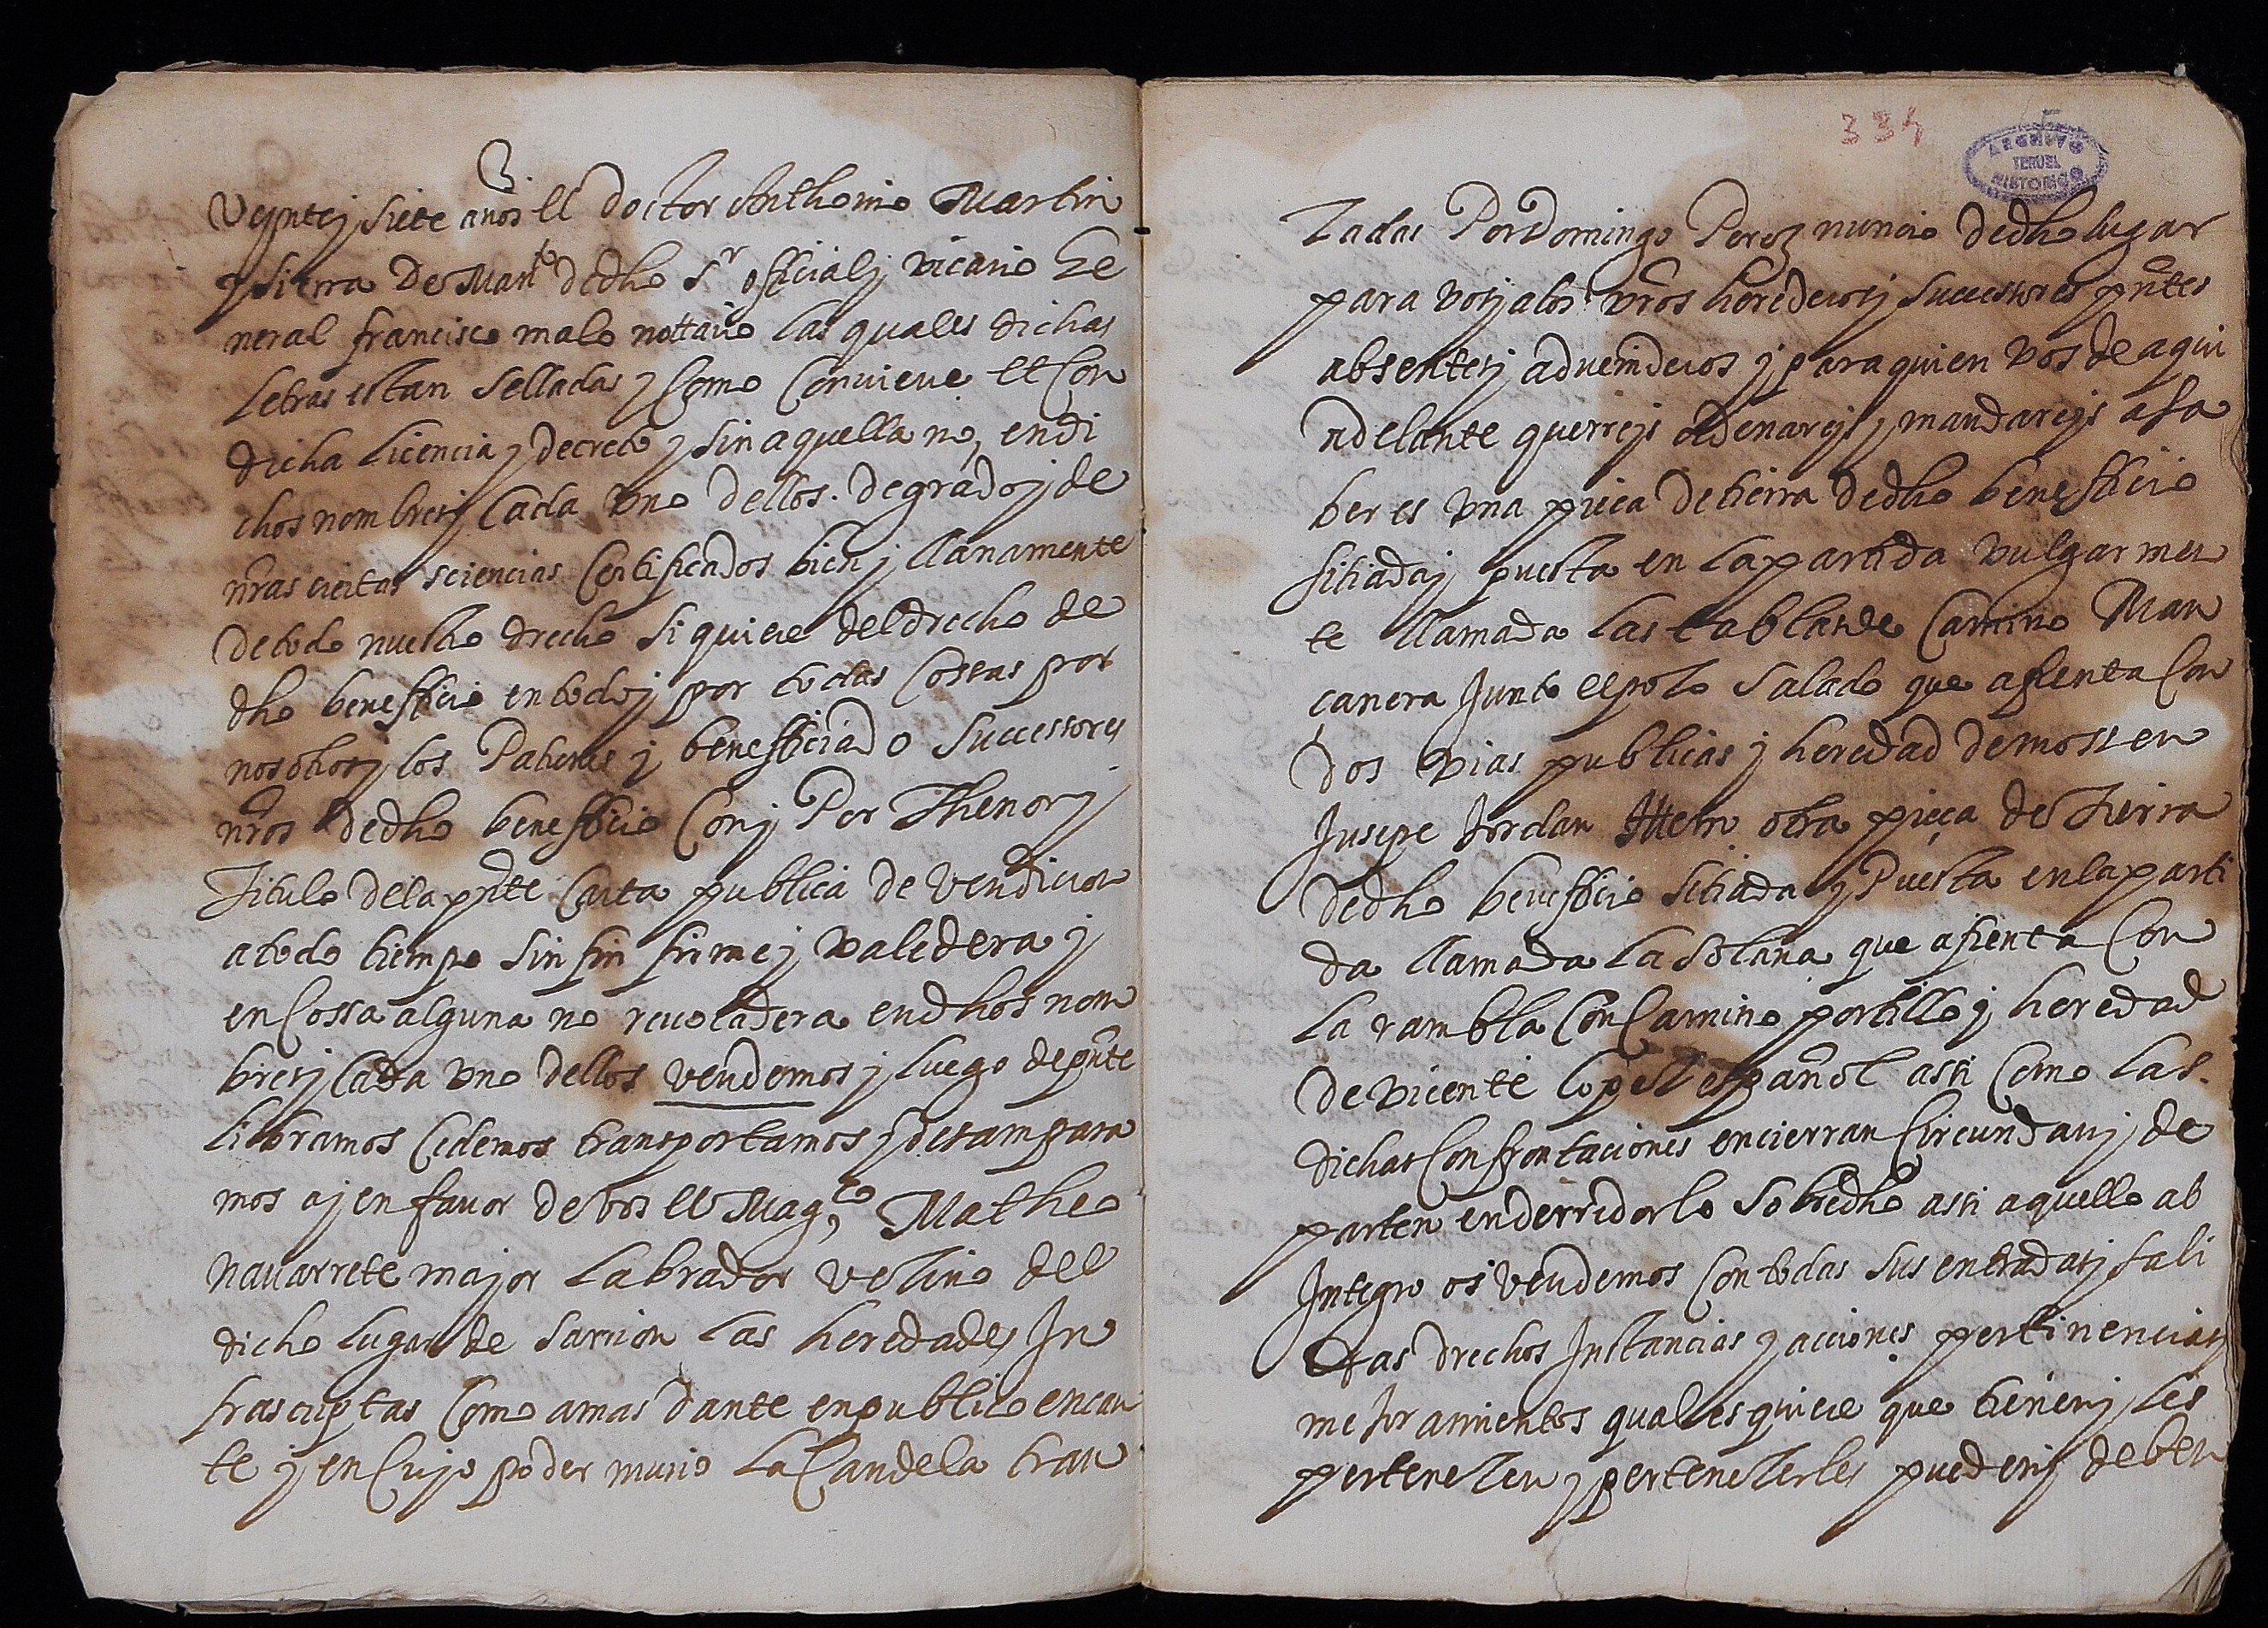 Veynte y siete años El doctor Anthonio Martin
y sierra De Man.to de dho S.r official y vicario Ge
neral francisco malo nottario las quales dichas
Letras estan Selladas y Como Conviene Et Con
dicha Licencia y decreto y sin aquella no, en di
chos nombres y Cada Uno dellos. de grado y de
nr̃as ciertas sciencias Certificados bien y llanamente
de todo nuestro drecho si quiere del drecho de
dho beneffício en todo y por todas Cossas por
nosotros y los Patrones y beneffíciado Successores
nr̃os de dho beneffício Con y Por Thenor y
Titulo de la pñte Carta publica de Vendicion
a todo tiempo sin fin firme y valedera y
en Cossa alguna no revocadera en dhos nom
bres y Cada Uno dellos vendemos y luego de pñte
libramos Cedemos transportamos y desampara
mos a y en favor de vos El Mag.co Matheo
navarrete major labrador vezino del
dicho lugar de Sarrion las heredades In
frascriptas Como a mas dante en publico encan
te y en Cuyo poder murio la Candela tran
334
5
ARCHIVO
TERUEL
HISTORICO
zadas Por Domingo Perez nuncio de dho lugar
para vos y a los vr̃os herederos y successores pñtes
absentes y advenideros y para quien vos de aqui
adelante querreys ordenareys y mandareys a sa
ber es una pieça de tierra de dho beneffício
sitiada y puesta en la partida vulgarmen
te llamada las tablas de Camino Man
çanera Junto el poço Salado que afrenta Con
dos vias publicas y heredad de mossen
Jusepe Jordan Ittem otra pieça de tierra
de dho beneffício sitiada y Puesta en la parti
da llamada la Solana que afrenta Con
la rambla Con Camino portillo y heredad
de vicente lopez español assi Como las
dichas Confrontaciones encierran Circundan y de
parten en derredor lo sobredho assi aquello ab
Integro os vendemos Con todas sus entradas y sali
das drechos Instancias y acciones pertinencias y
mejoramientos quales quiere que tienen y les
pertenezen y pertenezerles pueden y deben